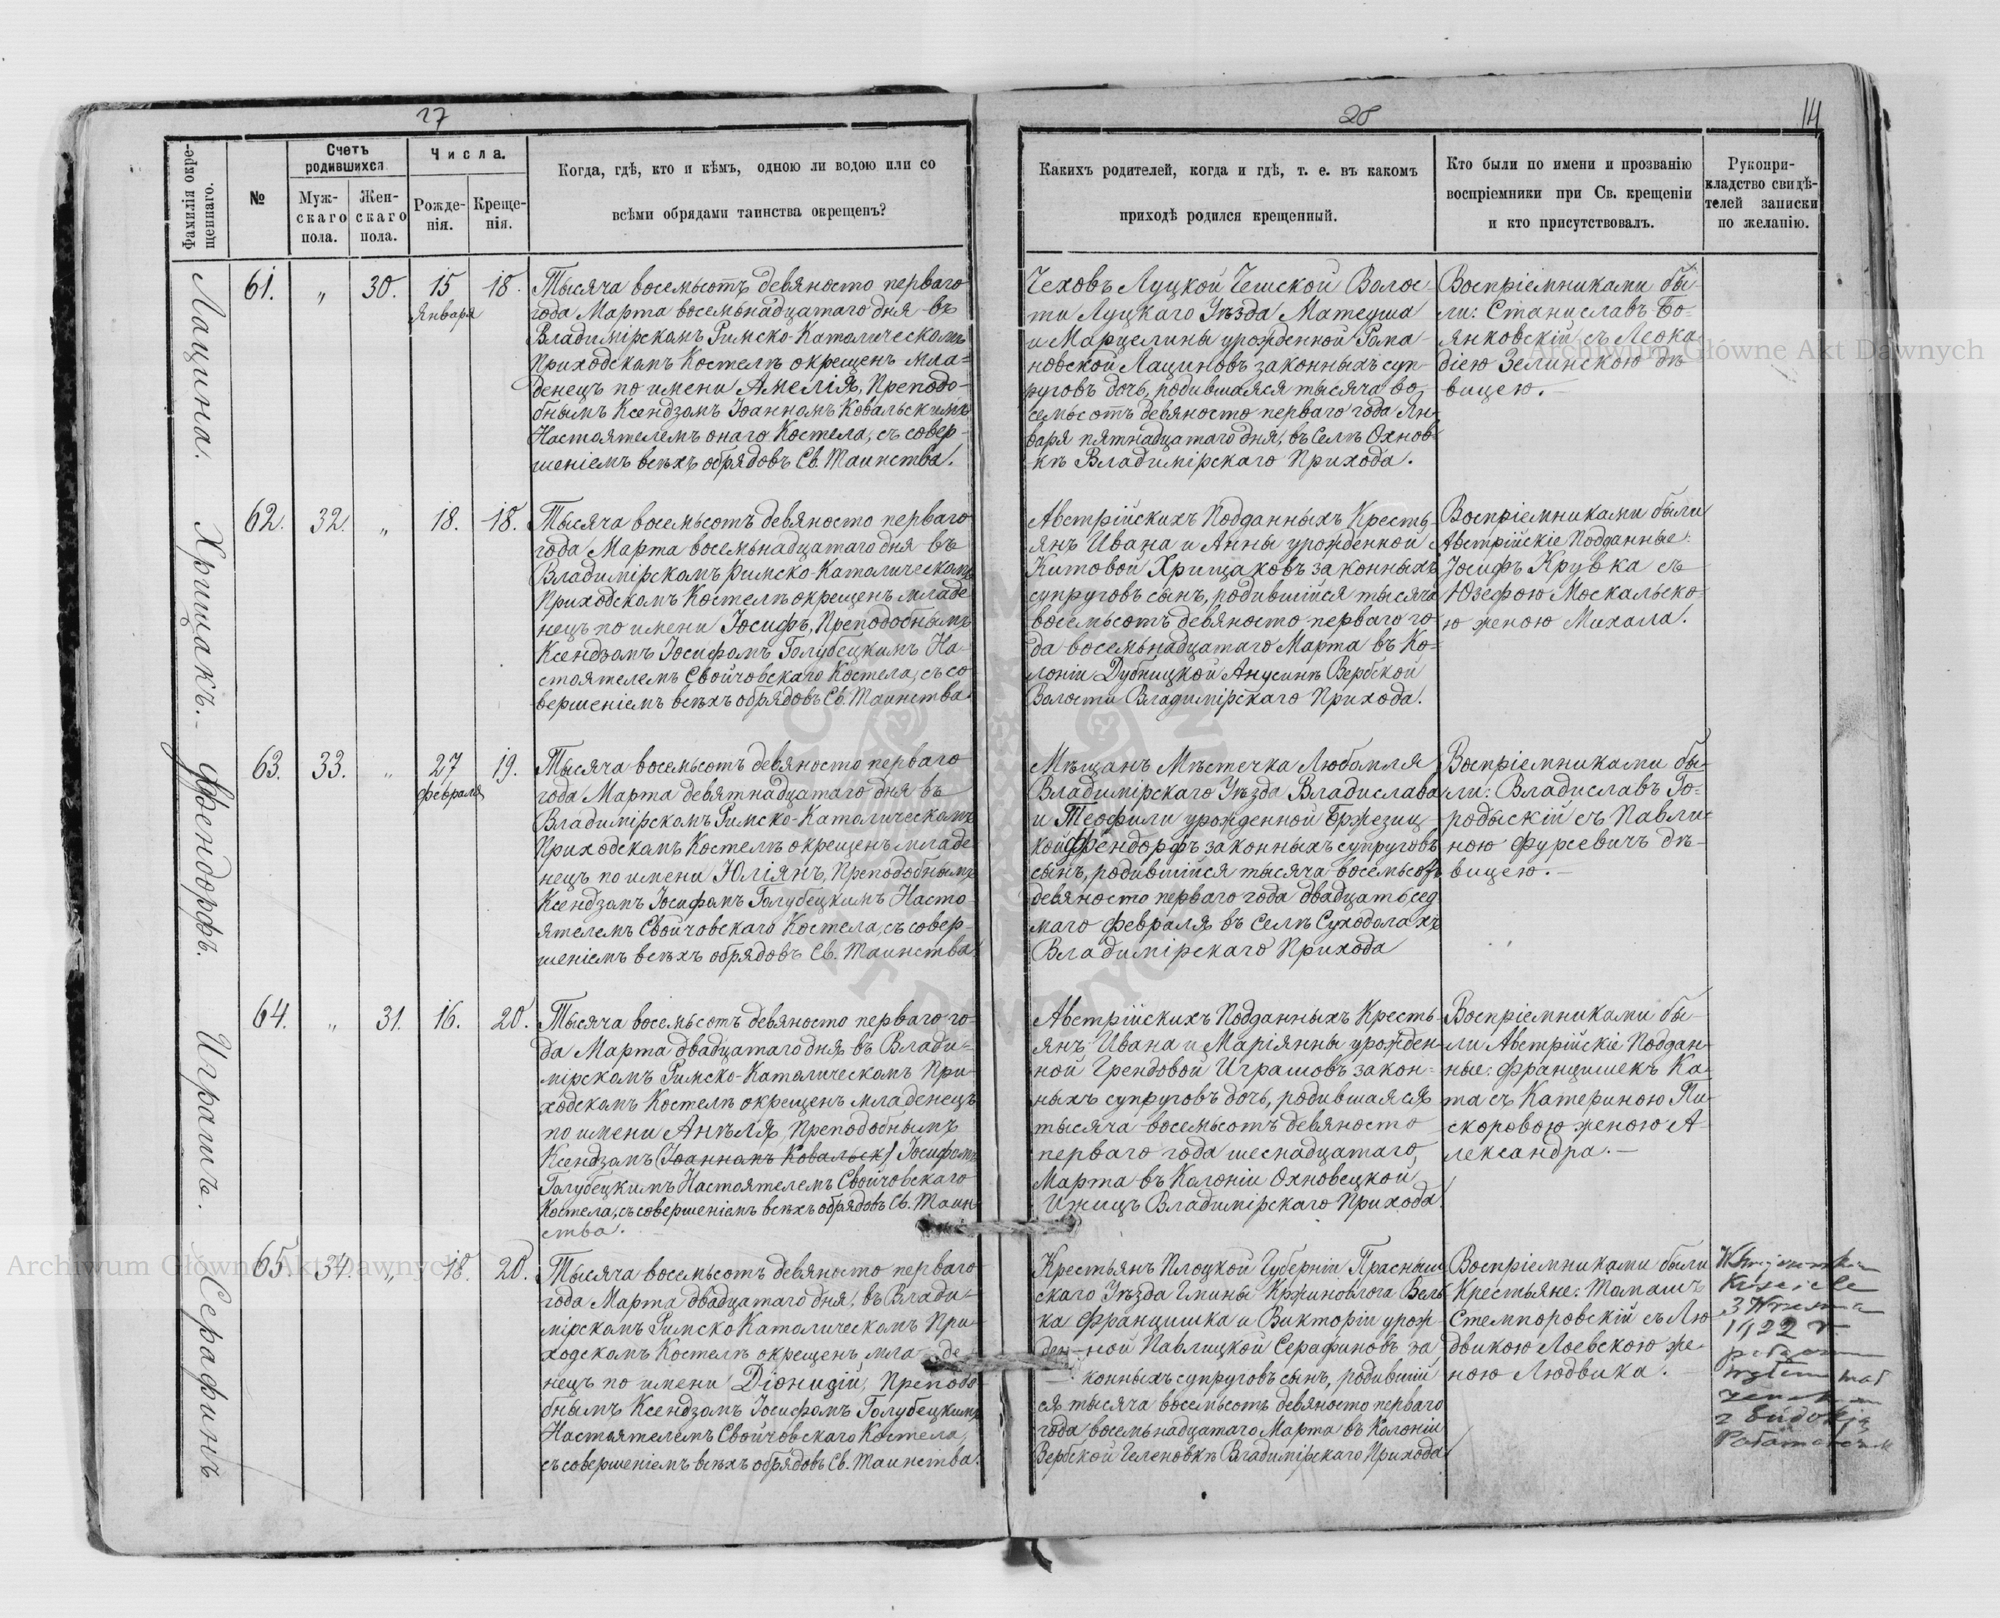 27
Фамилія окре-
щеннаго.
№
Счетъ
родившихся
Муж-
скаго
пола.
Жен-
скаго
пола.
Числа.
Рожде-
нія.
Креще-
нія.
Когда, гдѣ, кто и кѣмъ, одною ли водою или со
всѣми обрядами таинства окрещенъ?
Лацина.
61. „ 30. 15 Января 18.
Тысяча восемьсотъ девяносто перваго
года Марта восемьнадцатаго дня въ
Владимірскомъ Римско-Католическомъ
Приходскомъ Костелѣ окрещенъ мла-
денецъ по имени Амелія, Преподо-
бнымъ Ксендзомъ Іоанномъ Ковальскимъ
Настоятелемъ онаго Костела, съ совер-
шеніемъ всѣхъ обрядовъ Св. Таинства.
Хрищакъ.
62. 32. „ 18. 18.
Тысяча восемьсотъ девяносто перваго
года Марта восемьнадцатаго дня въ
Владимірскомъ Римско-Католическомъ
Приходскомъ Костелѣ окрещенъ младе
нецъ по имени Іосифъ, Преподобнымъ
Ксендзомъ Іосифомъ Голубецкимъ На-
стоятелемъ Свойчовскаго Костела, съ со
вершеніемъ всѣхъ обрядовъ Св. Таинства
Ффендорфъ.
63. 33. „ 27 февраля 19.
Тысяча восемьсотъ девяносто перваго
года Марта девятнадцатаго дня въ
Владимірскомъ Римско-Католическомъ
Приходскомъ Костелѣ окрещенъ младе
нецъ по имени Юліянъ, Преподобнымъ
Ксендзомъ Іосифомъ Голубецкимъ Насто-
ятелемъ Свойчовскаго Костела, съ совер-
шеніемъ всѣхъ обрядовъ Св. Таинства
Играшъ.
64. „ 31. 16. 20.
Тысяча восемьсотъ девяносто перваго го-
да Марта двадцатаго дня въ Влади-
мірскомъ Римско-Католическомъ При-
ходскомъ Костелѣ окрещенъ младенецъ
по имени Анѣля, Преподобнымъ
Ксендзомъ (Іоанномъ Ковальск) Іосифомъ
Голубецкимъ Настоятелемъ Свойчовскаго
Костела, съ совершеніемъ всѣхъ обрядовъ Св. Таин-
ства.
Серафинъ
65. 34. „ 18. 20.
Тысяча восемьсотъ девяносто перваго
года Марта двадцатаго дня, въ Влади-
мірскомъ Римско Католическомъ При-
ходскомъ Костелѣ окрещенъ мла-де-
нецъ по имени Діонизій, Преподо
бнымъ Ксендзомъ Іосифомъ Голубецкимъ
Настоятелемъ Свойчовскаго Костела,
съ совершеніемъ всѣхъ обрядовъ Св. Таинства.
28
14
Какихъ родителей, когда и гдѣ, т. е. въ какомъ
приходѣ родился крещенный.
Кто были по имени и прозванію
воспріемники при Св. крещеніи
и кто присутствовалъ.
Рукопри-
кладство свидѣ-
телей записки
по желанію.
Чеховъ Луцкой Чешской Волос-
ти Луцкаго Уѣзда Матеуша
и Марцелины урожденной Рома-
новской Лациновъ законныхъ суп-
руговъ дочь, родившаяся тысяча во
семьсотъ девяносто перваго года Ян-
варя пятнадцатаго дня, въ Селѣ Охнов-
кѣ Владимірскаго Прихода.
Воспріемниками бы-
ли: Станиславъ Бо-
янковскій съ Леока
діею Зелинскою дѣ
вицею.
Австрійскихъ Подданныхъ Кресть
янъ Ивана и Анны урожденной
Китовой Хрищаковъ законныхъ
супруговъ сынъ, родившійся тысяча
восемьсотъ девяносто перваго го
да восемьнадцатаго Марта въ Ко-
лоніи Дубницкой Анусинѣ Вербской
Волости Владимірскаго Прихода.
Воспріемниками были
Австрійскіе Подданные:
Іосифъ Крувка съ
Юзефою Москальско-
ю женою Михала.
Мѣщанъ Мѣстечка Любомля
Владимірскаго Уѣзда Владислава
и Теофили урожденной Бржезиц
кой Ффендорфъ законныхъ супруговъ
сынъ, родившійся тысяча восемьсотъ
девяносто перваго года двадцать сед
маго февраля въ Селѣ Суходолахъ
Владимірскаго Прихода
Воспріемниками бы-
ли: Владиславъ Го-
родыскій съ Павли-
ною Фурсевичъ дѣ-
вицею.
Австрійскихъ Подданныхъ Кресть-
янъ Ивана и Маріянны урожден
ной Грендовой Играшовъ закон-
ныхъ супруговъ дочь, родившаяся
тысяча восемьсотъ девяносто
перваго года шеснадцатаго,
Марта въ Колоніи Охновецкой
Ижицъ Владимірскаго Прихода
Воспріемниками бы-
ли Австрійскіе Поддан-
ные: Францишекъ Ка-
та съ Катериною Пи
скоровою женою А-
лександра.
Крестьянъ Плоцкой Губерніи Прасныш
скаго Уѣзда Гмины Кржиновлога Вель
ка Францишка и Викторіи урож-
ден-ной Павлицкой Серафиновъ за
конныхъ супруговъ сынъ, родившій
ся тысяча восемьсотъ девяносто перваго
года восемьнадцатаго Марта въ Колоніи
Вербской Геленовкѣ Владимірскаго Прихода
Воспріемниками были
Крестьяне: Томашъ
Стемпоровскій съ Лю
двикою Лоевскою же-
ною Людвика.
Kościele
1922 r.
Archiwum Główne Akt Dawnych
Archiwum Główne Akt Dawnych